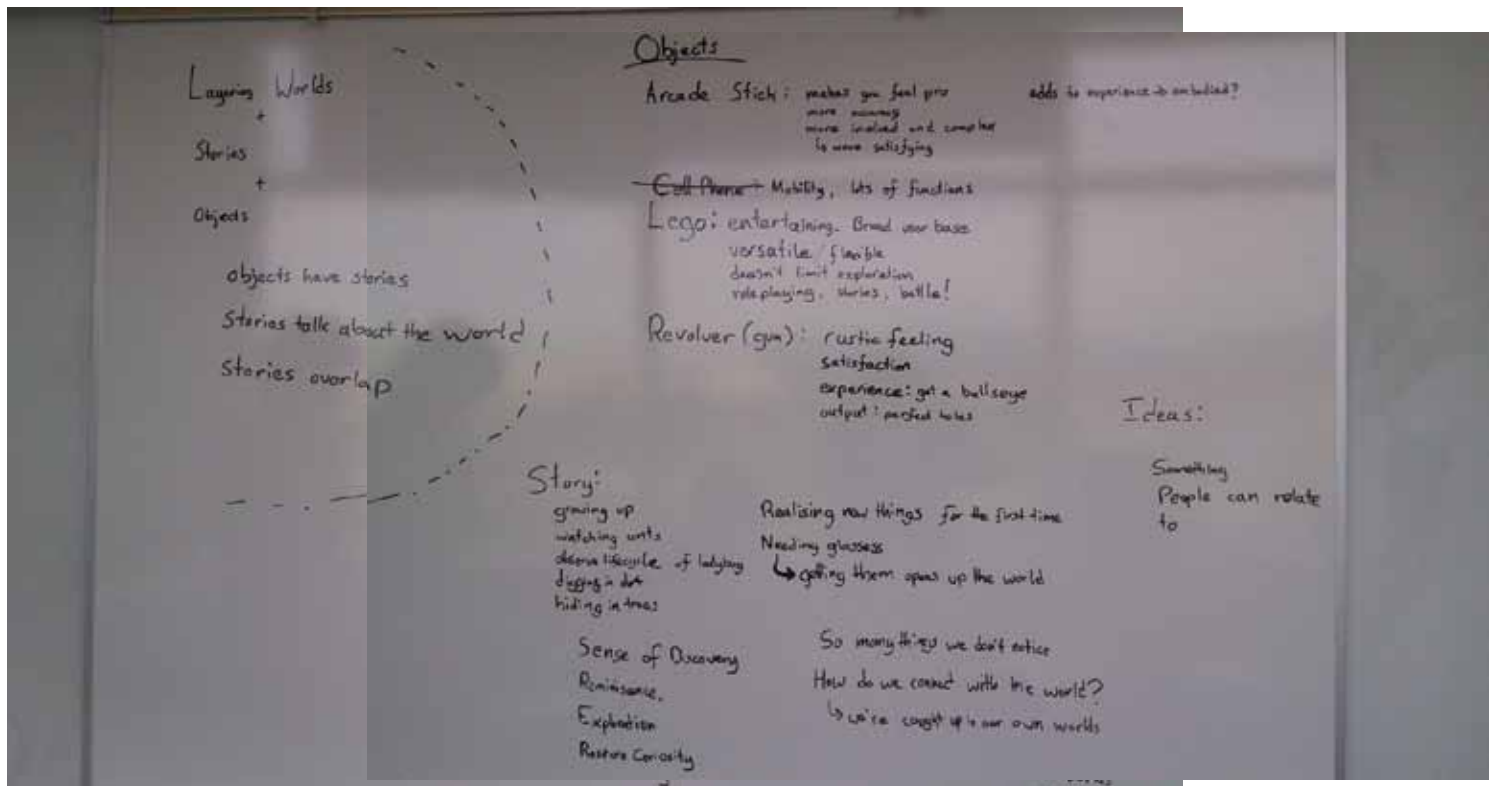 Layering Worlds
+
Stories
+
Objects
objects have stories
Stories talk about the world
Stories overlap
Objects
Arcade Stick: makes you feel pro
more
more involved and complex
is more satisfying
adds to experience → embodied?
Cell Phone: Mobility, lots of functions
Lego: entertaining. Broad user base
versatile / flexible
doesn't limit exploration
roleplaying, stories, battle!
Revolver (gun): rustic feeling
satisfaction
experience: get a bullseye
output: perfect holes
Ideas:
Something
People can relate
to
Story:
growing up
watching ants
observe lifecycle of ladybug
digging in dirt
hiding in trees
Realising new things for the first time
Needing glassess
↳ getting them opens up the world
Sense of Discovery
Reminisence.
Exploration
Restore Curiosity
So many things we don't notice
How do we connect with the world?
↳ we're caught up in our own worlds